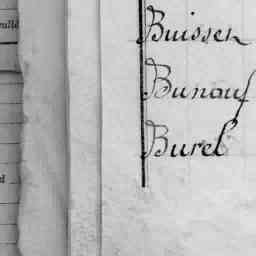 Buisson
Bunouf
Burel